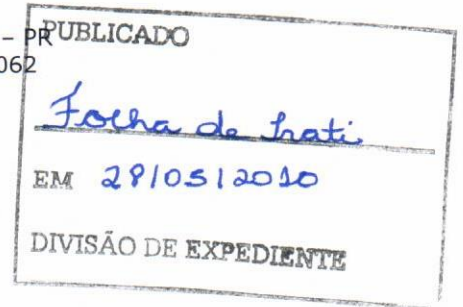 – PR
062
PUBLICADO
Folha de Irati
EM 28/05/2010
DIVISÃO DE EXPEDIENTE